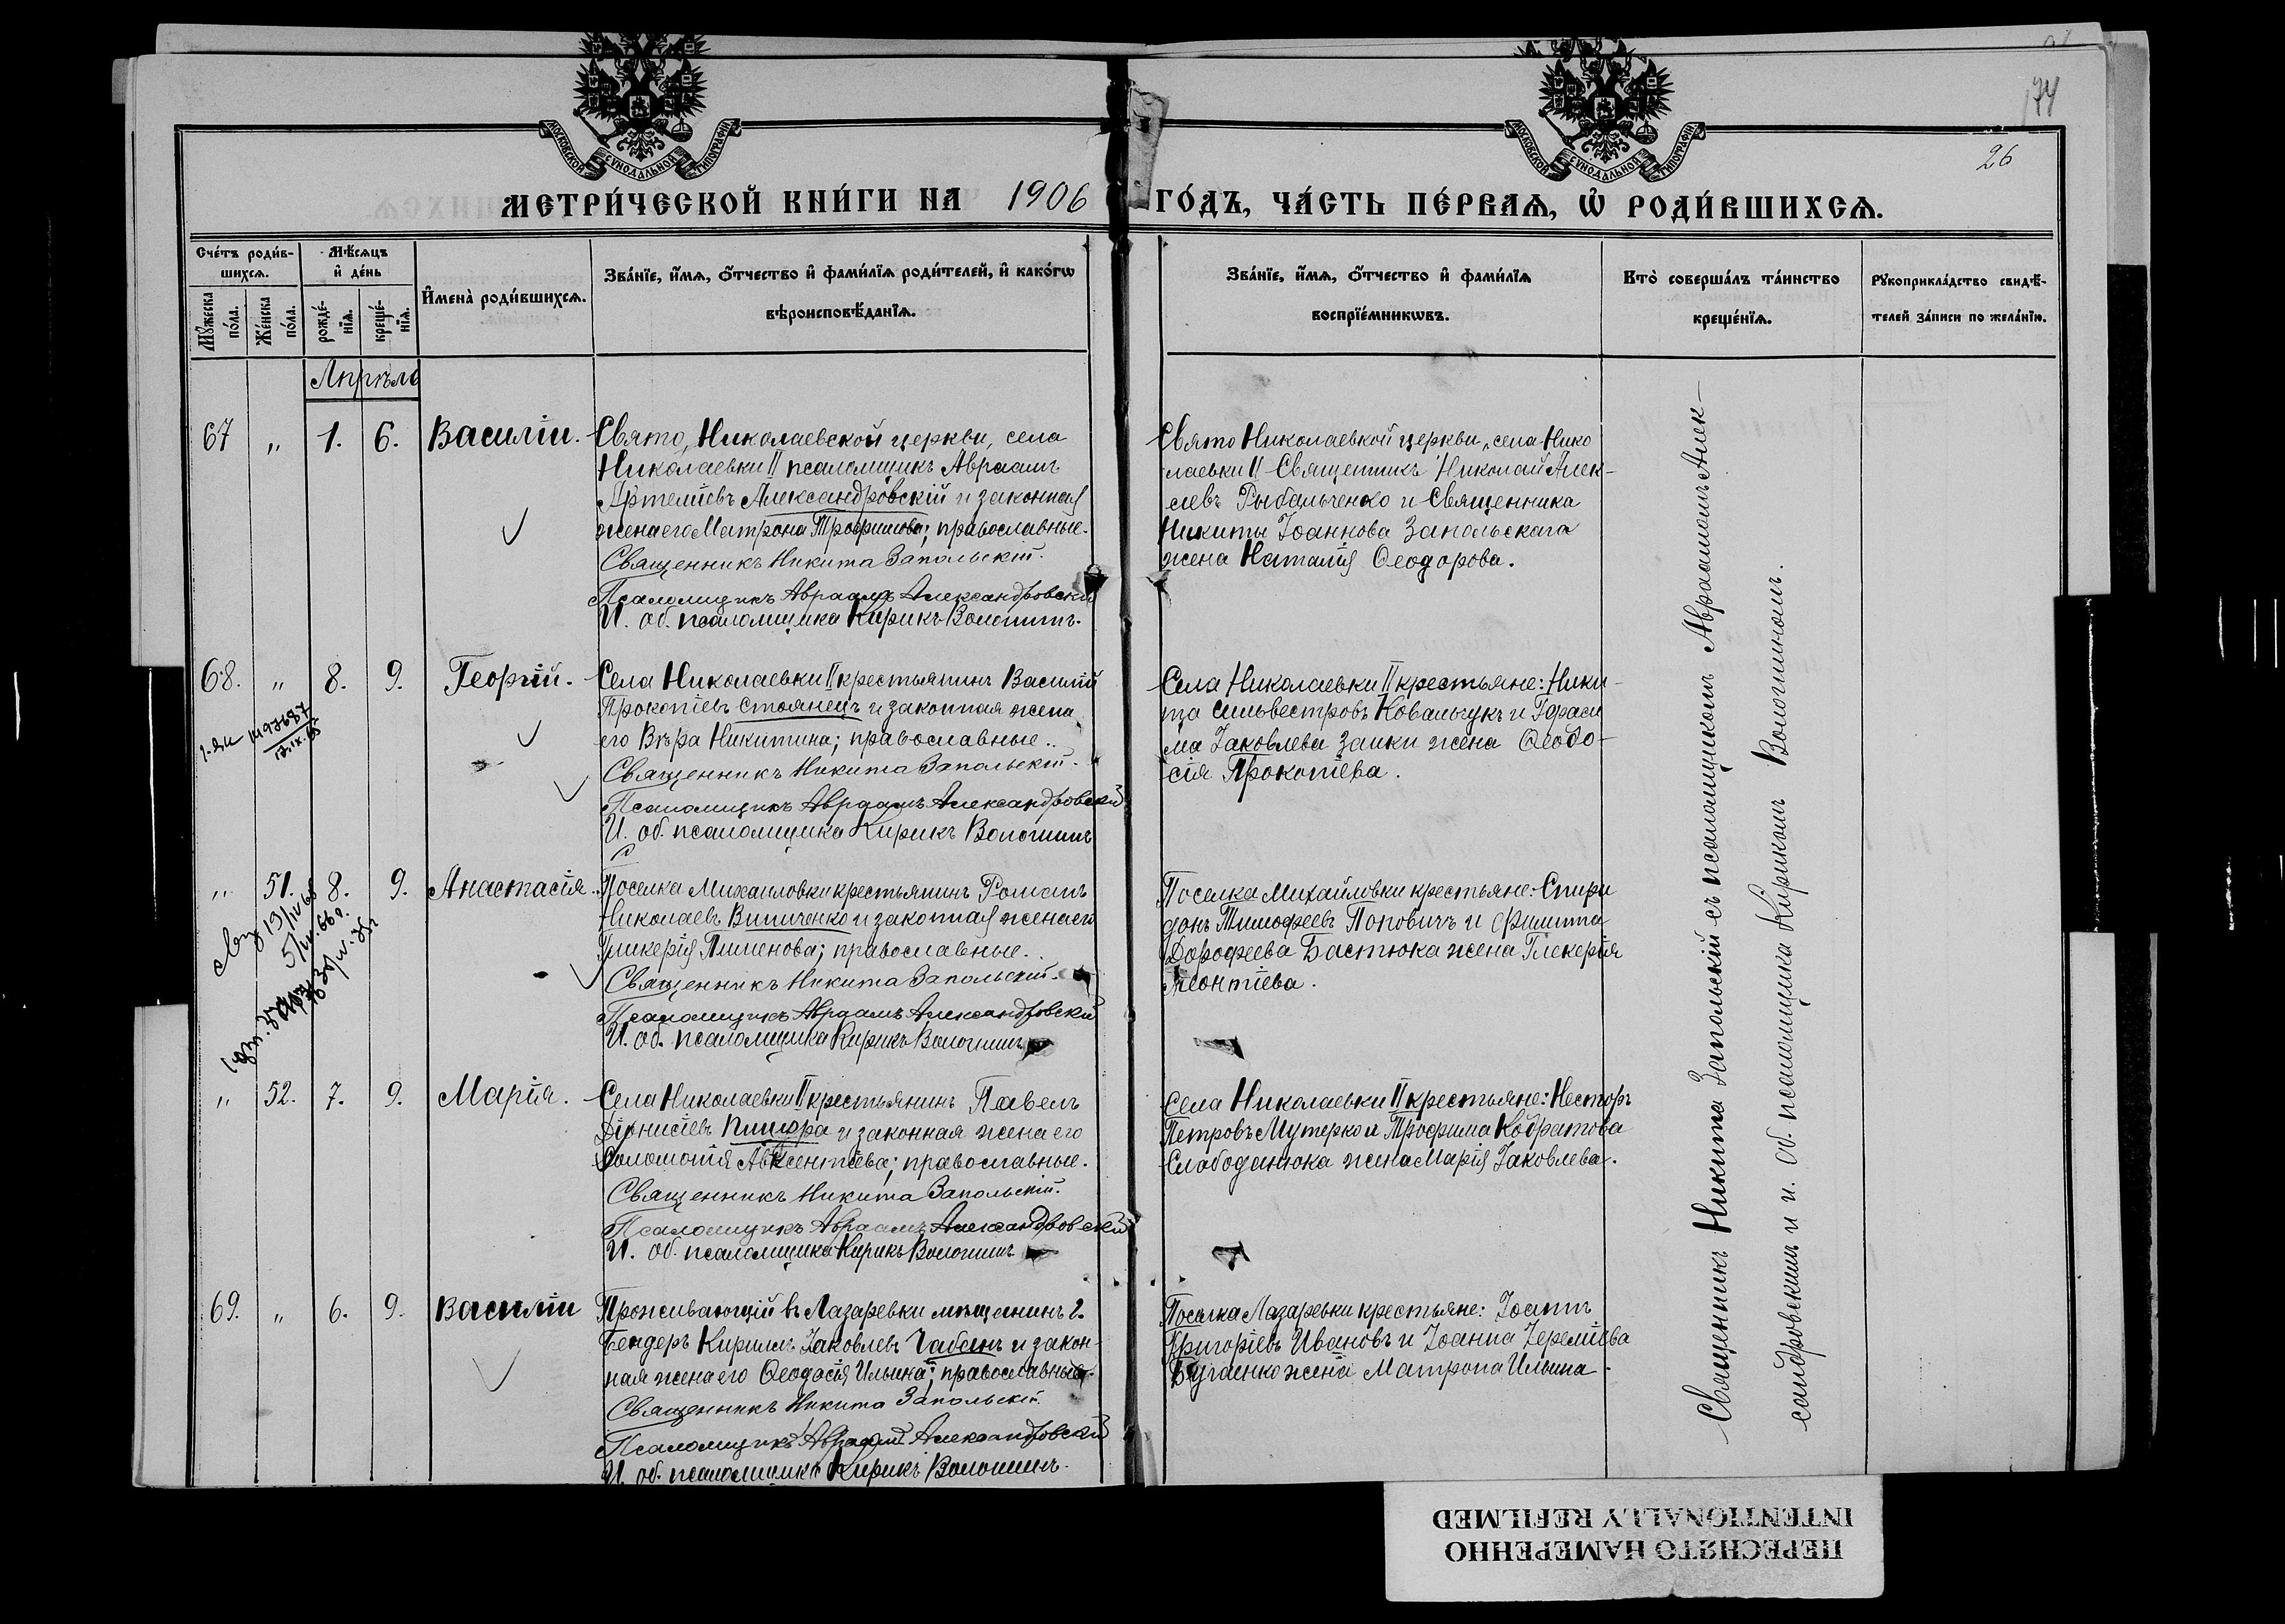 174
26
МОСКОВСКОЙ СѴНОДАЛЬНОЙ ТИПОГРАФІИ
МОСКОВСКОЙ СѴНОДАЛЬНОЙ ТИПОГРАФІИ
МЕТРИ́ЧЕСКОЙ КНИ́ГИ НА 1906 ГО́ДЪ, ЧА́СТЬ ПЕ́РВАѦ, Ѡ РОДИ́ВШИХСѦ.
Сче́тъ роди́в-
шихсѧ.
Мꙋ́жеска по́ла.
Же́нска по́ла.
Мѣ́сѧцъ
и де́нь
рожде́-
нїѧ.
креще́-
нїѧ.
Имена̀ роди́вшихсѧ.
Зва́нїе, и́мѧ, о́тчество и фами́лїѧ роди́телей, и како́гѡ
вѣроисповѣ́данїѧ.
Зва́нїе, и́мѧ, о́тчество и фами́лїѧ
воспрїе́мникѡвъ.
Кто̀ соверша́лъ та́инство
креще́нїѧ.
Рꙋкоприкла́дство свидѣ́-
телей за́писи по жела́нїю.
Апрѣль
67 „ 1. 6. Василій.
Свято, Николаевской церкви, села
Николаевки II псаломщикъ Авраамъ
Артеміевъ Александровскій и законная
жена его Матрона Трофимова; православные.
Священникъ Никита Запольскій.
Псаломщикъ Авраамъ Александровскій
И. об. псаломщика Кирикъ Волошинъ.
Свято Николаевкой церкви, села Нико
лаевки II Священникъ Николай Алек-
сіевъ Рыбальченко и Священника
Никиты Іоаннова Запольскаго
жена Наталія Ѳеодорова.
68. „ 8. 9. Георгій.
Села Николаевки II крестьянинъ Василій
Прокопіевъ Стоянецъ и законная жена
его Вѣра Никитина; православные.
Священникъ Никита Запольскій.
Псаломщикъ Авраамъ Александровскій
И. об. псаломщика Кирикъ Волошинъ
Села Николаевки II крестьяне: Ники-
та Сильвестровъ Ковальчукъ и Гераси
ма Іаковлева Заики жена Ѳеодо-
сія Прокопіева.
„ 51. 8. 9. Анастасія.
Поселка Михаиловки крестьянинъ Романъ
Николаевъ Виниченко и законная жена его
Гликерія Пименова; православные.
Священникъ Никита Запольскій.
Псаломщикъ Авраамъ Александровскій
И. об. псаломщика Кирикъ Волошинъ
Поселка Михайловки крестьяне: Спири
донъ Тимофеевъ Поповичъ и Филиппа
Дорофеева Бастюка жена Глекерія
Леонтіева.
„ 52. 7. 9. Марія.
Села Николаевки II крестьянинъ Павелъ
Діонисіевъ и законная жена его
Соломонія Авксентіева; православные.
Священникъ Никита Запольскій.
Псаломщикъ Авраамъ Александровскій
И. об. псаломщика Кирикъ Волошинъ
Села Николаевки II крестьяне: Несторъ
Петровъ Мутерко и Трофима Кодратова
Слабоданюка жена Марія Іаковлева.
69. „ 6. 9. Василій
Проживающій въ Лазаревки мѣщанинъ г.
Бендеръ Кириллъ Іаковлевъ Чабанъ и закон-
ная жена его Ѳеодосія Ильина; православные.
Священникъ Никита Запольскій.
Псаломщикъ Авраамъ Александровскій
И. об. псаломщика Кирикъ Волошинъ.
Поселка Лазаревки крестьяне: Іоаннъ
Григоріевъ Ивановъ и Іоанна Іереміева
Бугаенко жена Матрона Ильина.
Священникъ Никита Запольскій съ псаломщикомъ Авраамомъ Алек-
сандровскимъ и и. об. псаломщика Кирикомъ Волошиномъ.
ПЕРЕСНЯТО НАМЕРЕННО
INTENTIONALLY REFILMED